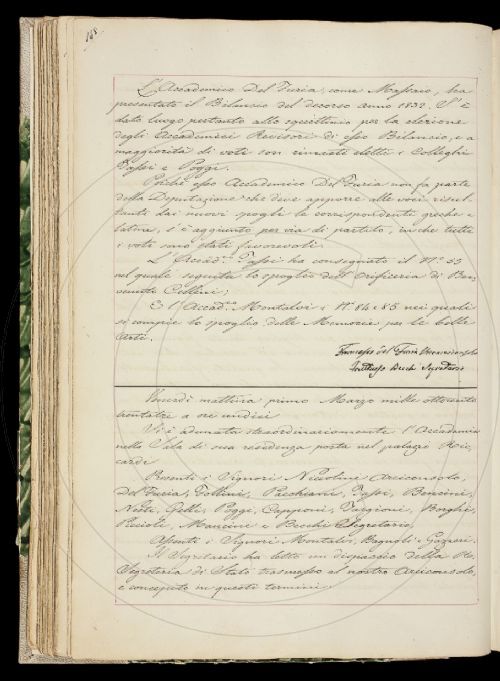 168
L'Accademico Del Furia, come Massaio, ha
presentato il Bilancio del decorso anno 1832. S'è
dato luogo pertanto allo squittinio per la elezione
degli Accademici Revisori di esso Bilancio, e a
maggiorità di voti son rimasti eletti i Colleghi
Tassi e Poggi.
Poichè esso Accademico Del Furia non fa parte
della Deputazione che deve apporre alle voci risul-
tanti dai nuovi spogli le corrispondenti greche e
latine, s'è aggiunto per via di partito, in che tutti
i voti sono stati favorevoli.
L'Accad.co Tassi ha consegnato il N.o 55
nel quale seguita lo spoglio dell'Orificeria di Ben-
venuto Cellini;
E l'Accad.co Montalvi i N.i 84 e 85 nei quali
si compie lo spoglio delle Memorie per le belle
Arti.
Francesco del Furia
Fruttuoso Becchi Segretario
Venerdì mattina primo Marzo mille ottocento
trentatre a ore undici
Vi è adunata straordinariamente l'Accademia
nella Sala di sua residenza posta nel palazzo Ric-
cardi
Presenti i Signori Niccolini Arciconsolo,
Del Furia, Follini, Pacchiani, Tassi, Bencini,
Nesti, Gelli, Poggi, Capponi, Targioni, Borghi,
Piccioli, Mancini e Becchi Segretario,
Assenti i Signori Montalvi, Bagnoli e Gazzeri.
Il Segretario ha letto un dispaccio della R.
Segreteria di Stato trasmesso al nostro Arciconsolo,
e concepito in questi termini: